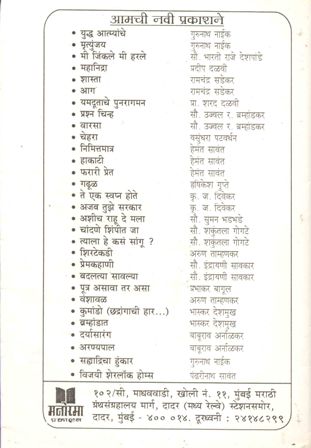 आमची नवी प्रकाशने
• युद्ध आत्म्यांचे गुरुनाथ नाईक
• मृत्युंजय गुरुनाथ नाईक
• मी जिंकले मी हरले सौ. भारती राजे देशपांडे
• महानिद्रा प्रदीप दळवी
• शास्ता रामचंद्र सडेकर
• आग रामचंद्र सडेकर
• यमदूताचे पुनरागमन प्रा. शरद दळवी
• प्रश्न चिन्ह सौ. उज्वल र. ब्रम्हांडकर
• वारसा सौ. उज्वल र. ब्रम्हांडकर
• चेहरा वसुंधरा पटवर्धन
• निमित्तमात्र हेमंत सावंत
• हाकाटी हेमंत सावंत
• फरारी प्रेत हेमंत सावंत
• गढूळ हृषिकेश गुप्ते
• ते एक स्वप्न होते कृ. ज. दिवेकर
• अजब तुझे सरकार कृ. ज. दिवेकर
• अशीच राहू दे मला सौ. सुमन भडभडे
• चांदणे शिंपीत जा सौ. शकुंतला गोगटे
• त्याला हे कसं सांगू ? सौ. शकुंतला गोगटे
• शिरटेकडी अरुण ताम्हणकर
• प्रेमकहाणी सौ. इंद्रायणी सावकार
• बदलत्या सावल्या सौ. इंद्रायणी सावकार
• पुत्र असावा तर असा प्रभाकर बागुल
• वंशावळ अरुण ताम्हणकर
• कुमांडो (छद्रांगाची हार...) भास्कर देशमुख
• ब्रम्हांडात भास्कर देशमुख
• दर्यासारंग बाबुराव अर्नाळकर
• अरण्यपाल बाबुराव अर्नाळकर
• सह्याद्रिचा हुंकार गुरुनाथ नाईक
• विजयी शेरलॉक होम्स पंढरीनाथ सावंत
मनोरमा प्रकाशन
१०२/सी, माधववाडी, खोली नं. ११, मुंबई मराठी
ग्रंथसंग्रहालय मार्ग, दादर (मध्य रेल्वे) स्टेशनसमोर,
दादर, मुंबई - ४०० ०१४. दूरध्वनी : २४१४८२९९